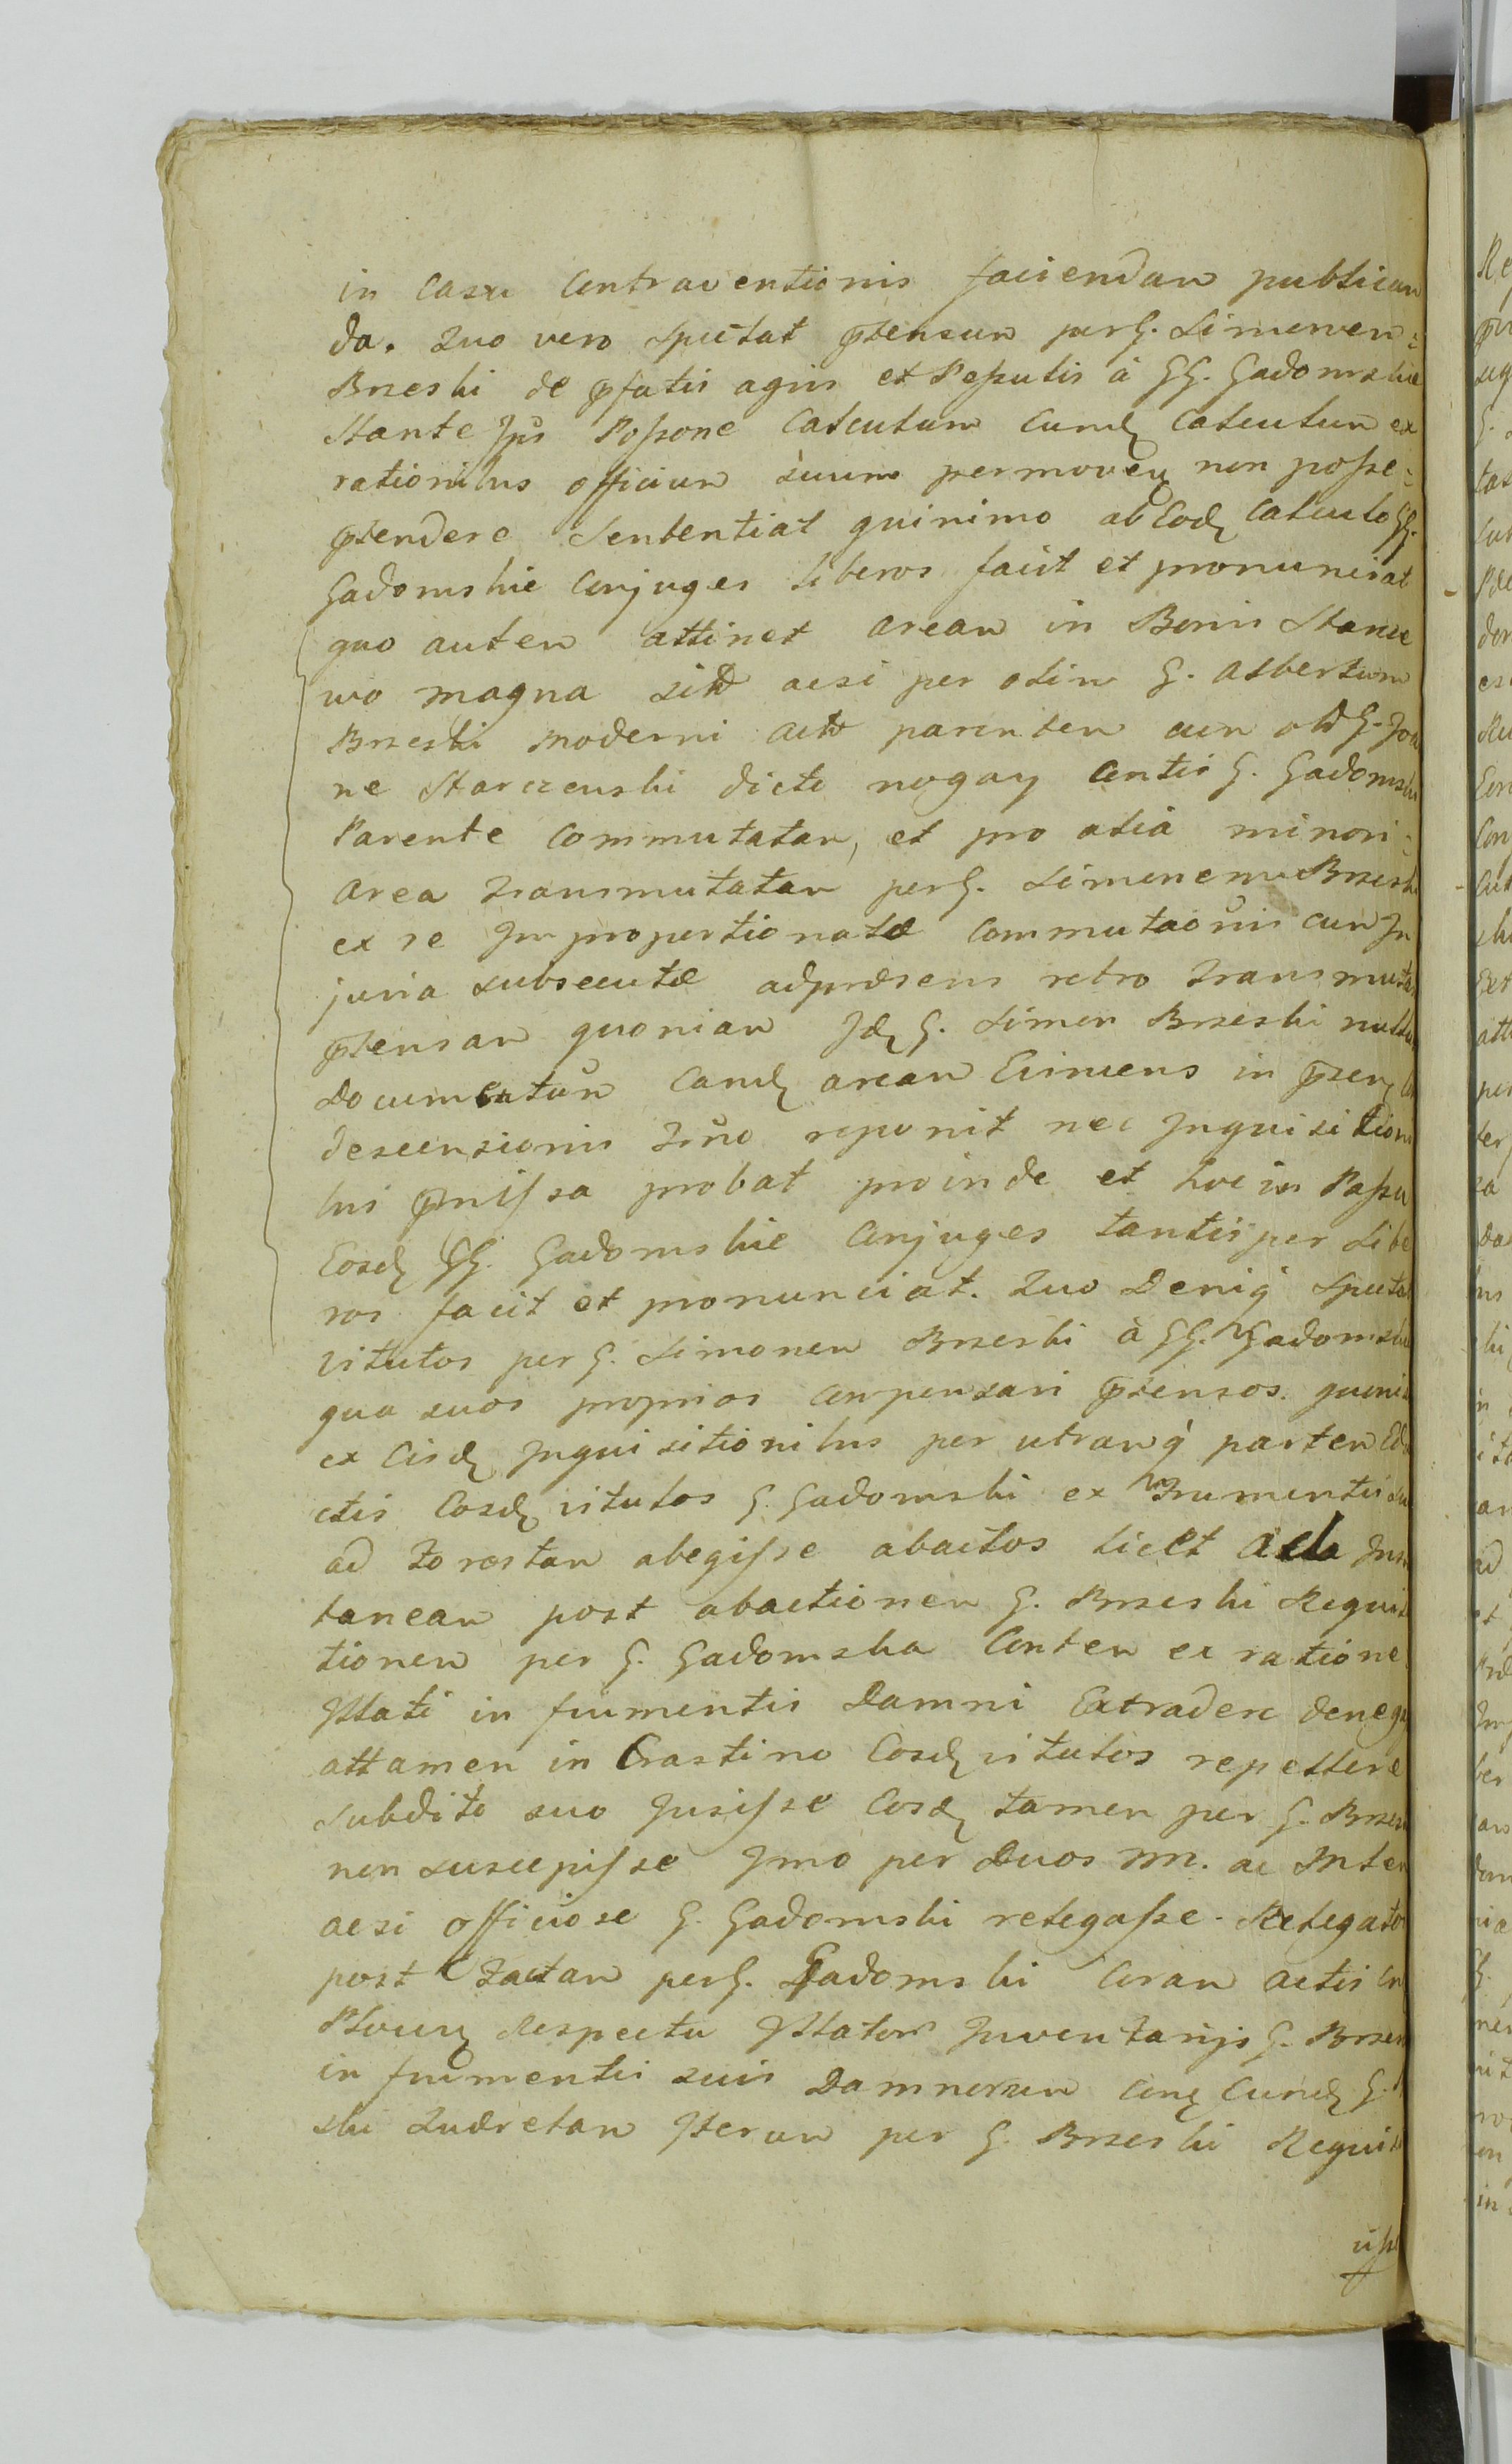 in casu contraventionis faciendam publican
da. Quo vero spectat pr̃tensum per G. Simonem
Brzeski de pr̃fatis agris et Peputis à GG. Gadomskie
Stante Jp̃s Poſsone calculum eund̨ calculum ex
rationibus officium suum permoveñ non poſse
pr̃tendere Sententiat quinimo ab Eod̨ calculo GG.
Gadomskie conjuges liberos facit et pronunciat
quo autem attinet aream in Bonis Starcze
wo magna sit̃ acsi per olim G. Albertum
Brzeski moderni act̃ parentem cum ol̃ G. Joa
ne Starczewski dicto nogay contis G. Gadomski
Parente commutatam, et pro alia minori
area transmutatam per G. Simonem Brzeski
ex re Improportionatæ commutaõnis cum In
juria subsecutæ adpræsens retro transmutari
pr̃tensam quoniam Jd̨ G. Simon Brzeski nullum
Documentum eand̨ aream Evincens in pr̃sen̨
descensionis Trño reponit nec Inquisitioni
bus pr̃miſsa probat proinde et hoc in Paſsu
Eosd̨ GG. Gadomskie conjuges tantisper libe
ros facit et pronunciat. Quo Deniq̃ Specta
vitulos per G. Simonem Brzeski à GG. Gadomskie
qua suos proprios compensari pr̃tensos. quoni
ex eisd̨ Inquisitionibus per utramq̃ partem Edu
ctis eosd̨ vitulos G. Gadomski ex frumentis su
ad Zorostam abegiſse abactos licet
taneam post abactionem G. Brzeski Requisi
tionem per G. Gadomska contem ex ratione
Jllati in frumentis Damni Extradere denega
attamen in Crastino eosd̨ vitulos repellere
subdito suo Jusiſse eosd̨ tamen per G. Brzesk
non suscepiſse Jmo per Duos mm. ac Inter
acsi officiose G. Gadomski relegaſse. Relegato
post factam per G. Gadomski coram actis
Plocen̨ Respectu Jllator̃ Inventarijs G. Brzes
in frumentis suis Damnorum con̨ eund̨ G.
ski Iterum per G. Brzeski Requisi